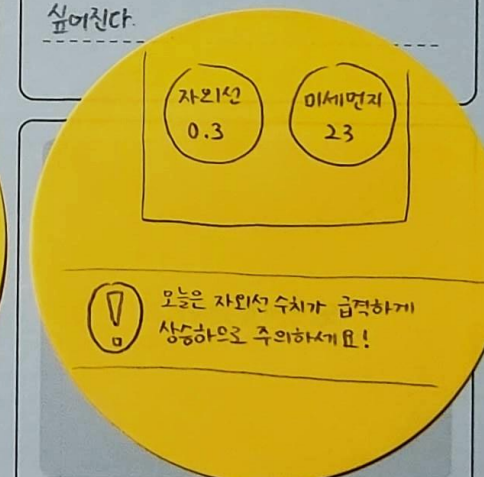 싶어진다.
자외선 미세먼지
0.3 23
오늘은 자외선 수치가 급격하게
상승하므로 주의하세요!